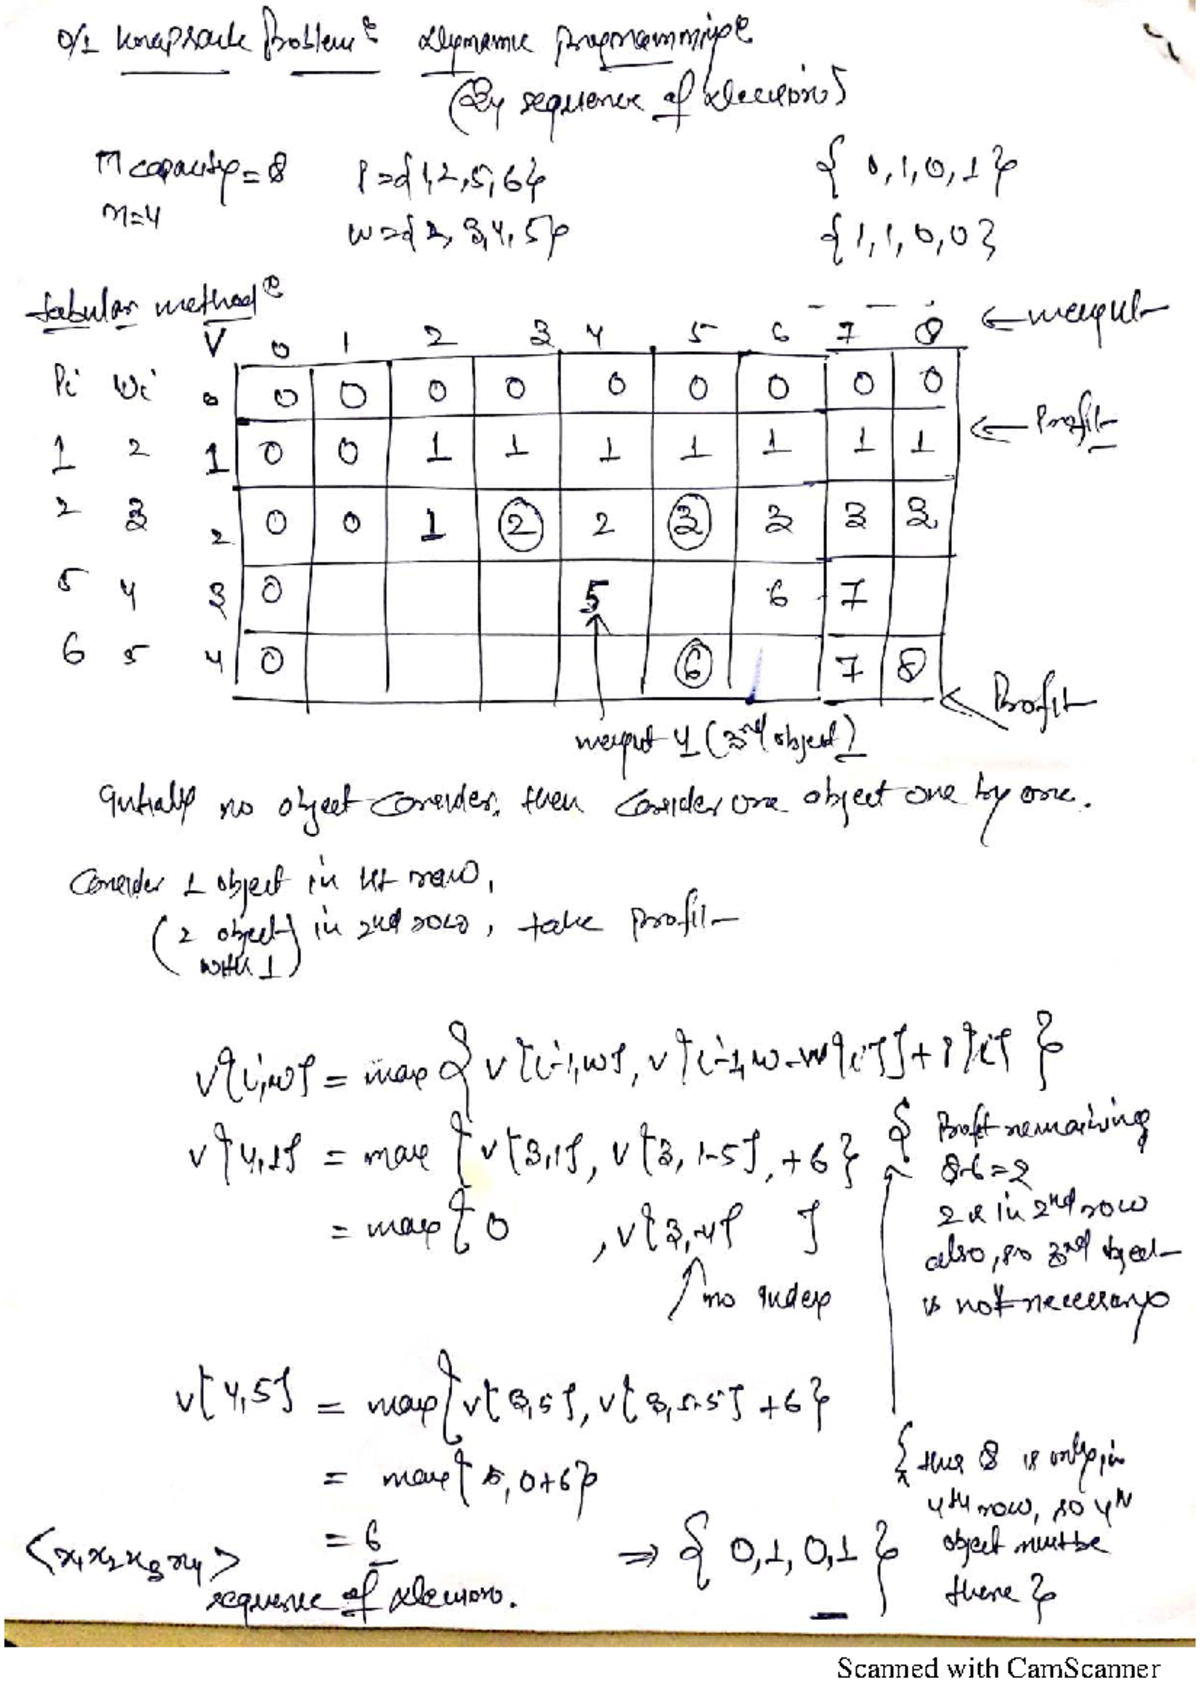 0/1 Knapsack Problem: Dynamic Programming
(By sequence of decisions)
M capacity = 8 P = {1,2,5,6} { 0,1,0,1 }
n=4 w = {2,3,4,5} {1,1,0,0}
tabular method:
V 0 1 2 3 4 5 6 7 8 ← weight
Pi wi 0 0 0 0 0 0 0 0 0 0
← Profit
1 2 1 0 0 1 1 1 1 1 1 1
2 3 2 0 0 1 2 2 3 3 3 3
5 4 3 0 5 6 7
6 5 4 0 6 7 8
← Profit
weight 4 (3rd object)
Initially no object consider, then consider one object one by one.
Consider 1 object in 1st row,
(2 object) in 2nd row, take profit
with 1
V[i,w] = max { V[i-1,w], V[i-1,w-w[i]] + P[i] }
V[4,1] = max { V[3,1], V[3,1-5], +6 }
= max { 0 , V[3,-4] }
no index
{ Profit remaining
8-6=2
2 is in 2nd row
also, so 3rd object
is not necessary
V[4,5] = max { V[3,5], V[3,5-5] +6 }
= max { 5, 0+6 }
= 6
{ this 8 is only in
4th row, so 4th
object must be
there }
<x1 x2 x3 x4> ⇒ { 0,1,0,1 }
sequence of decision.
Scanned with CamScanner